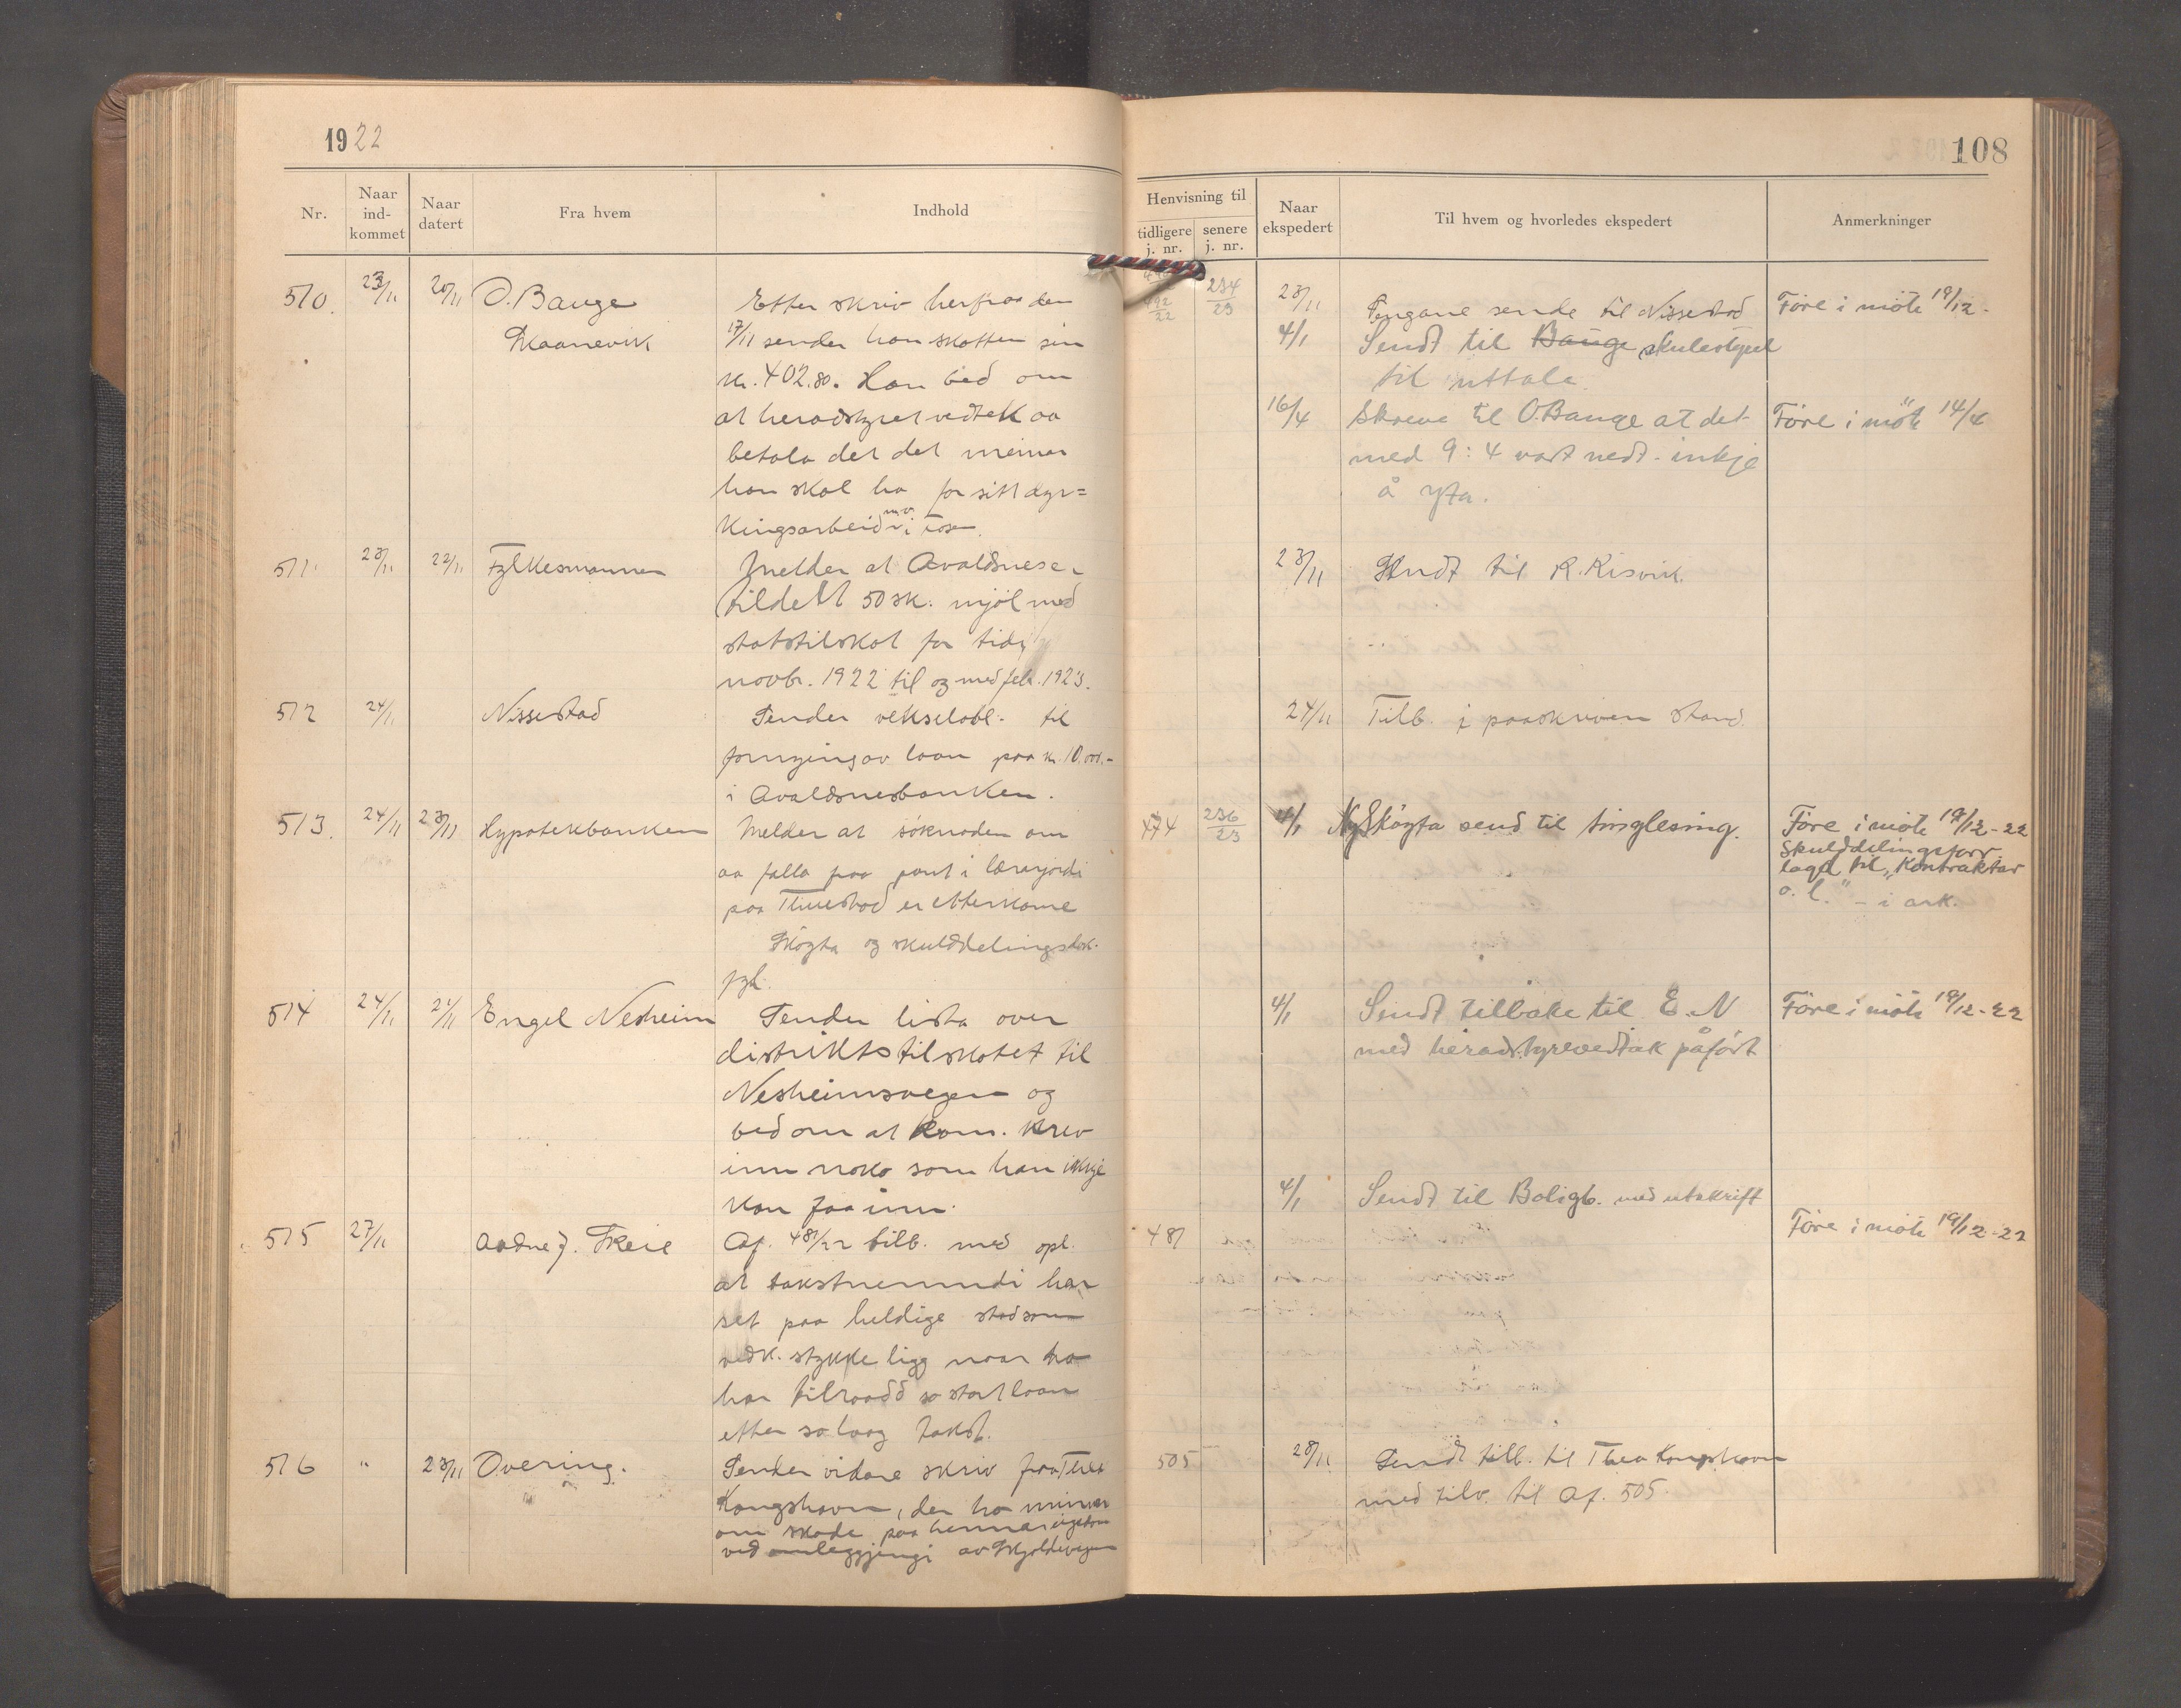 1922
108
Nr.
Naar ind-kommet
Naar datert
Fra hvem
Indhold
Henvisning til
tidligere j. nr.
senere j. nr.
Naar ekspedert
Til hvem og hvorledes ekspedert
Anmerkninger
510. 23/11 20/11 O. Bauge
Skaanevik
Etter skriv herfraa den
17/11 sender han skatten sin
kr. 402.80. Han bed om
at heradstyret vedtek aa
betala det det meiner
han skal ha for sitt dyr=
kingsarbeid m.v. i
492/22 234/23 23/11 Pengane sende til Nissestad
Före i möte 19/12-
4/1 Sendt til Bauge skulestyret
til uttale.
16/4 Skreve til O. Bauge at det
Före i möte 14/4
med 9:4 vart nedt. inkje
å yta.
511. 23/11 22/11 Fylkesmannen
Melder at Avaldsnes er
tildelt 50 sk. mjöl med
statstilskot for tidi
novbr. 1922 til og med febr. 1923.
23/11 Sendt til R. Risvik.
512 24/11 Nissestad
Sender vekselobl. til
fornying av laan paa kr. 10.000.-
i Avaldsnesbanken.
24/11 Tilb. i paaskriven stand.
513. 24/11 23/11 Hypotekbanken
Melder at söknaden om
aa falla fraa pant i lærarjordi
paa Thuestad er etterkome
Skøyta og skulddelingsdok.
fyl.
474 236/23 4/1 Ny Skøyta send til tinglesing.
Före i möte 19/12-22
Skulddelingsforr.
lagd til "Kontrakter
o. l." - i ark.
514 24/11 21/11 Engel Nesheim
Sender lista over
distriktstilskotet til
Nesheimsvegen og
bed om at kom. krev
inn noko som han ikkje
kan faa inn.
4/1 Sendt tilbake til E. N
Före i möte 19/12-22
med heradstyrevedtak påfört
515 27/11 Aadne J. Skeie
Af. 481/22 tilb. med opl.
at takstnemndi har
set paa heldige stad som
vedk. stykke ligg naar ho
har tilraadd so stort laan
etter so laag takst.
481
4/1 Sendt til Boligb. med utskrift
Före i möte 19/12-22
516 " 23/11 Overing.
Sender vidare skriv fraa Thea
Kongshavn, der ho minner
om skade paa hennar eigedom
ved omleggjingi av Skjoldevegen
505 28/11 Sendt tilb. til Thea Kongshavn
med tilv. til Af. 505.